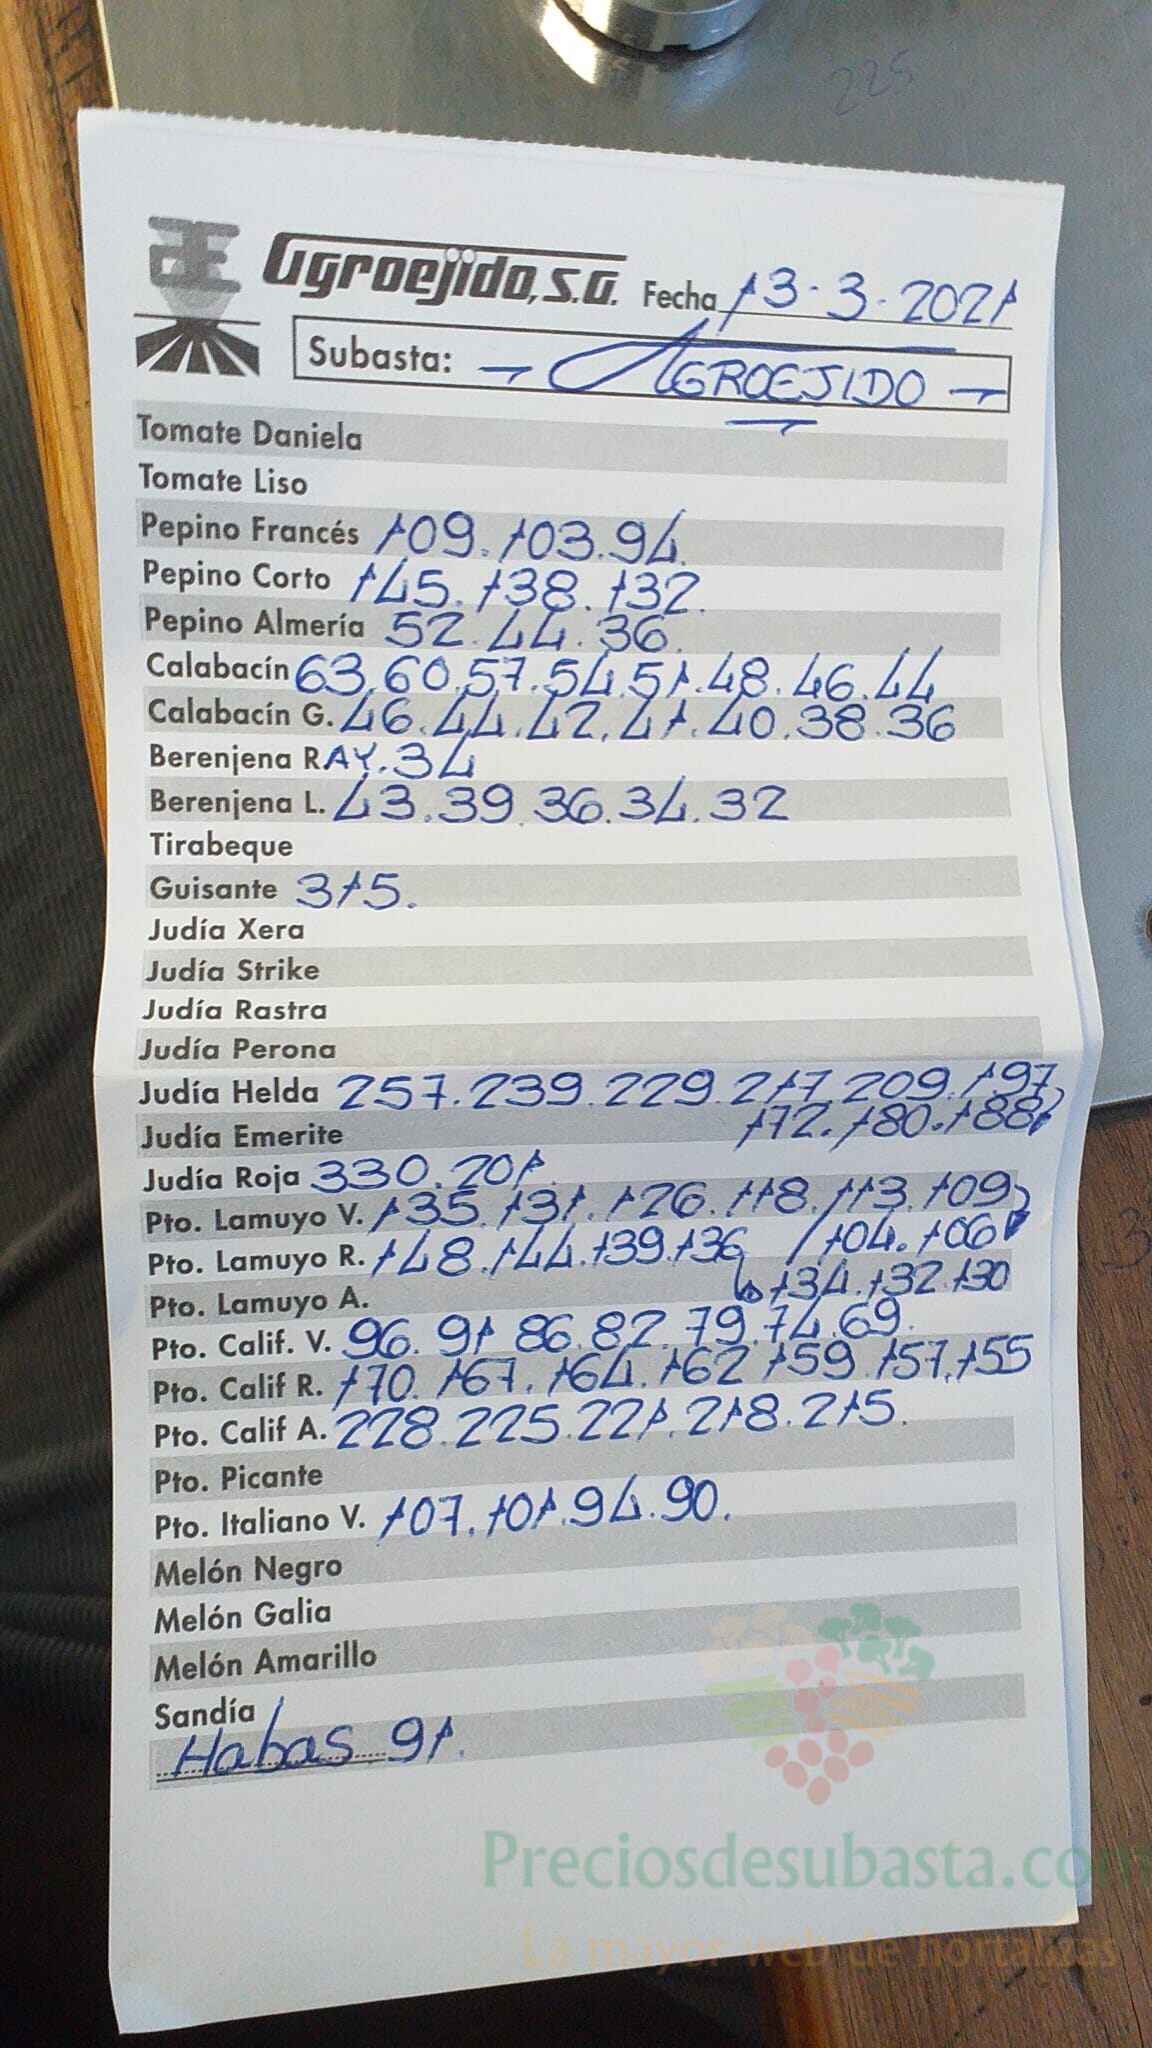 225
Agroejido, S.A. Fecha 13-3-2021
Subasta: - AGROEJIDO -
Tomate Daniela
Tomate Liso
Pepino Francés 109.103.94.
Pepino Corto 145.138.132.
Pepino Almería 52.44.36.
Calabacín 63.60.57.54.51.48.46.44
Calabacín G. 46.44.42.41.40.38.36
Berenjena RAY.34
Berenjena L. 43.39.36.34.32
Tirabeque
Guisante 315.
Judía Xera
Judía Strike
Judía Rastra
Judía Perona
Judía Helda 257.239.229.217.209.197
172.180.188
Judía Emerite
Judía Roja 330.201.
Pto. Lamuyo V. 135.131.126.118.113.109
104.106
Pto. Lamuyo R. 148.144.139.136
134.132.130
Pto. Lamuyo A.
Pto. Calif. V. 96.91.86.82.79.74.69.
Pto. Calif R. 170.167.164.162.159.157.155
Pto. Calif A. 228.225.221.218.215.
Pto. Picante
Pto. Italiano V. 107.101.94.90.
Melón Negro
Melón Galia
Melón Amarillo
Sandía
Habas 91.
Preciosdesubasta.com
La mayor web de hortalizas